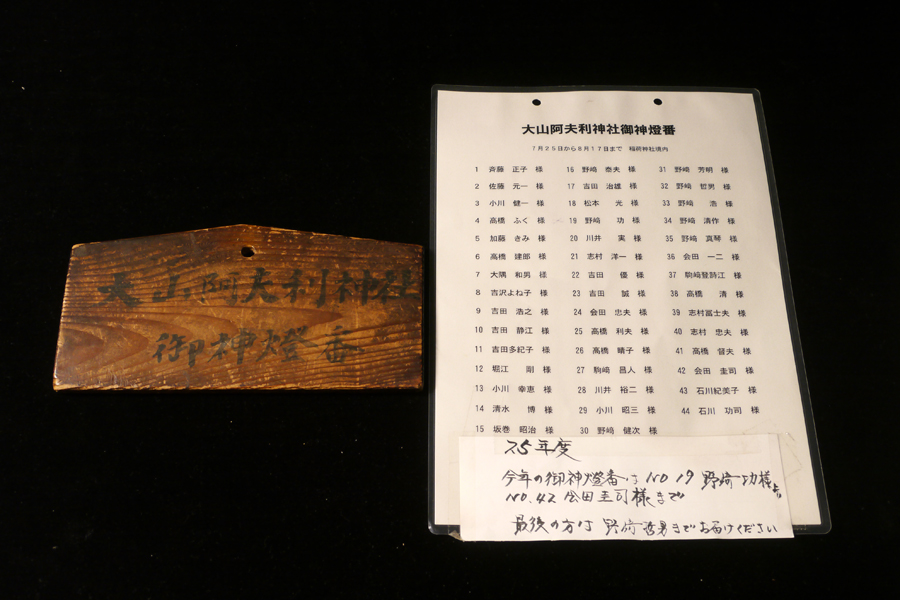 大山阿夫利神社
御神燈番
大山阿夫利神社御神燈番
7月25日から8月17日まで 稲荷神社境内
1 斉藤 正子 様 16 野崎 泰夫 様 31 野崎 芳明 様
2 佐藤 元一 様 17 吉田 治雄 様 32 野崎 哲男 様
3 小川 健一 様 18 松本 光 様 33 野崎 浩 様
4 高橋 ふく 様 19 野崎 功 様 34 野崎 清作 様
5 加藤 きみ 様 20 川井 実 様 35 野崎 真琴 様
6 高橋 建郎 様 21 志村 洋一 様 36 会田 一二 様
7 大隅 和男 様 22 吉田 優 様 37 駒崎登詩江 様
8 吉沢よね子 様 23 吉田 誠 様 38 高橋 清 様
9 吉田 浩之 様 24 会田 忠夫 様 39 志村冨士夫 様
10 吉田 静江 様 25 高橋 利夫 様 40 志村 忠夫 様
11 吉田多紀子 様 26 高橋 晴子 様 41 高橋 督夫 様
12 堀江 剛 様 27 駒崎 昌人 様 42 会田 圭司 様
13 小川 幸恵 様 28 川井 裕二 様 43 石川紀美子 様
14 清水 博 様 29 小川 昭三 様 44 石川 功司 様
15 坂巻 昭治 様 30 野崎 健次 様
25年度
今年の御神燈番は NO 19 野崎功様より
NO.42 会田圭司様まで
最後の方は 野崎哲男までお届けください